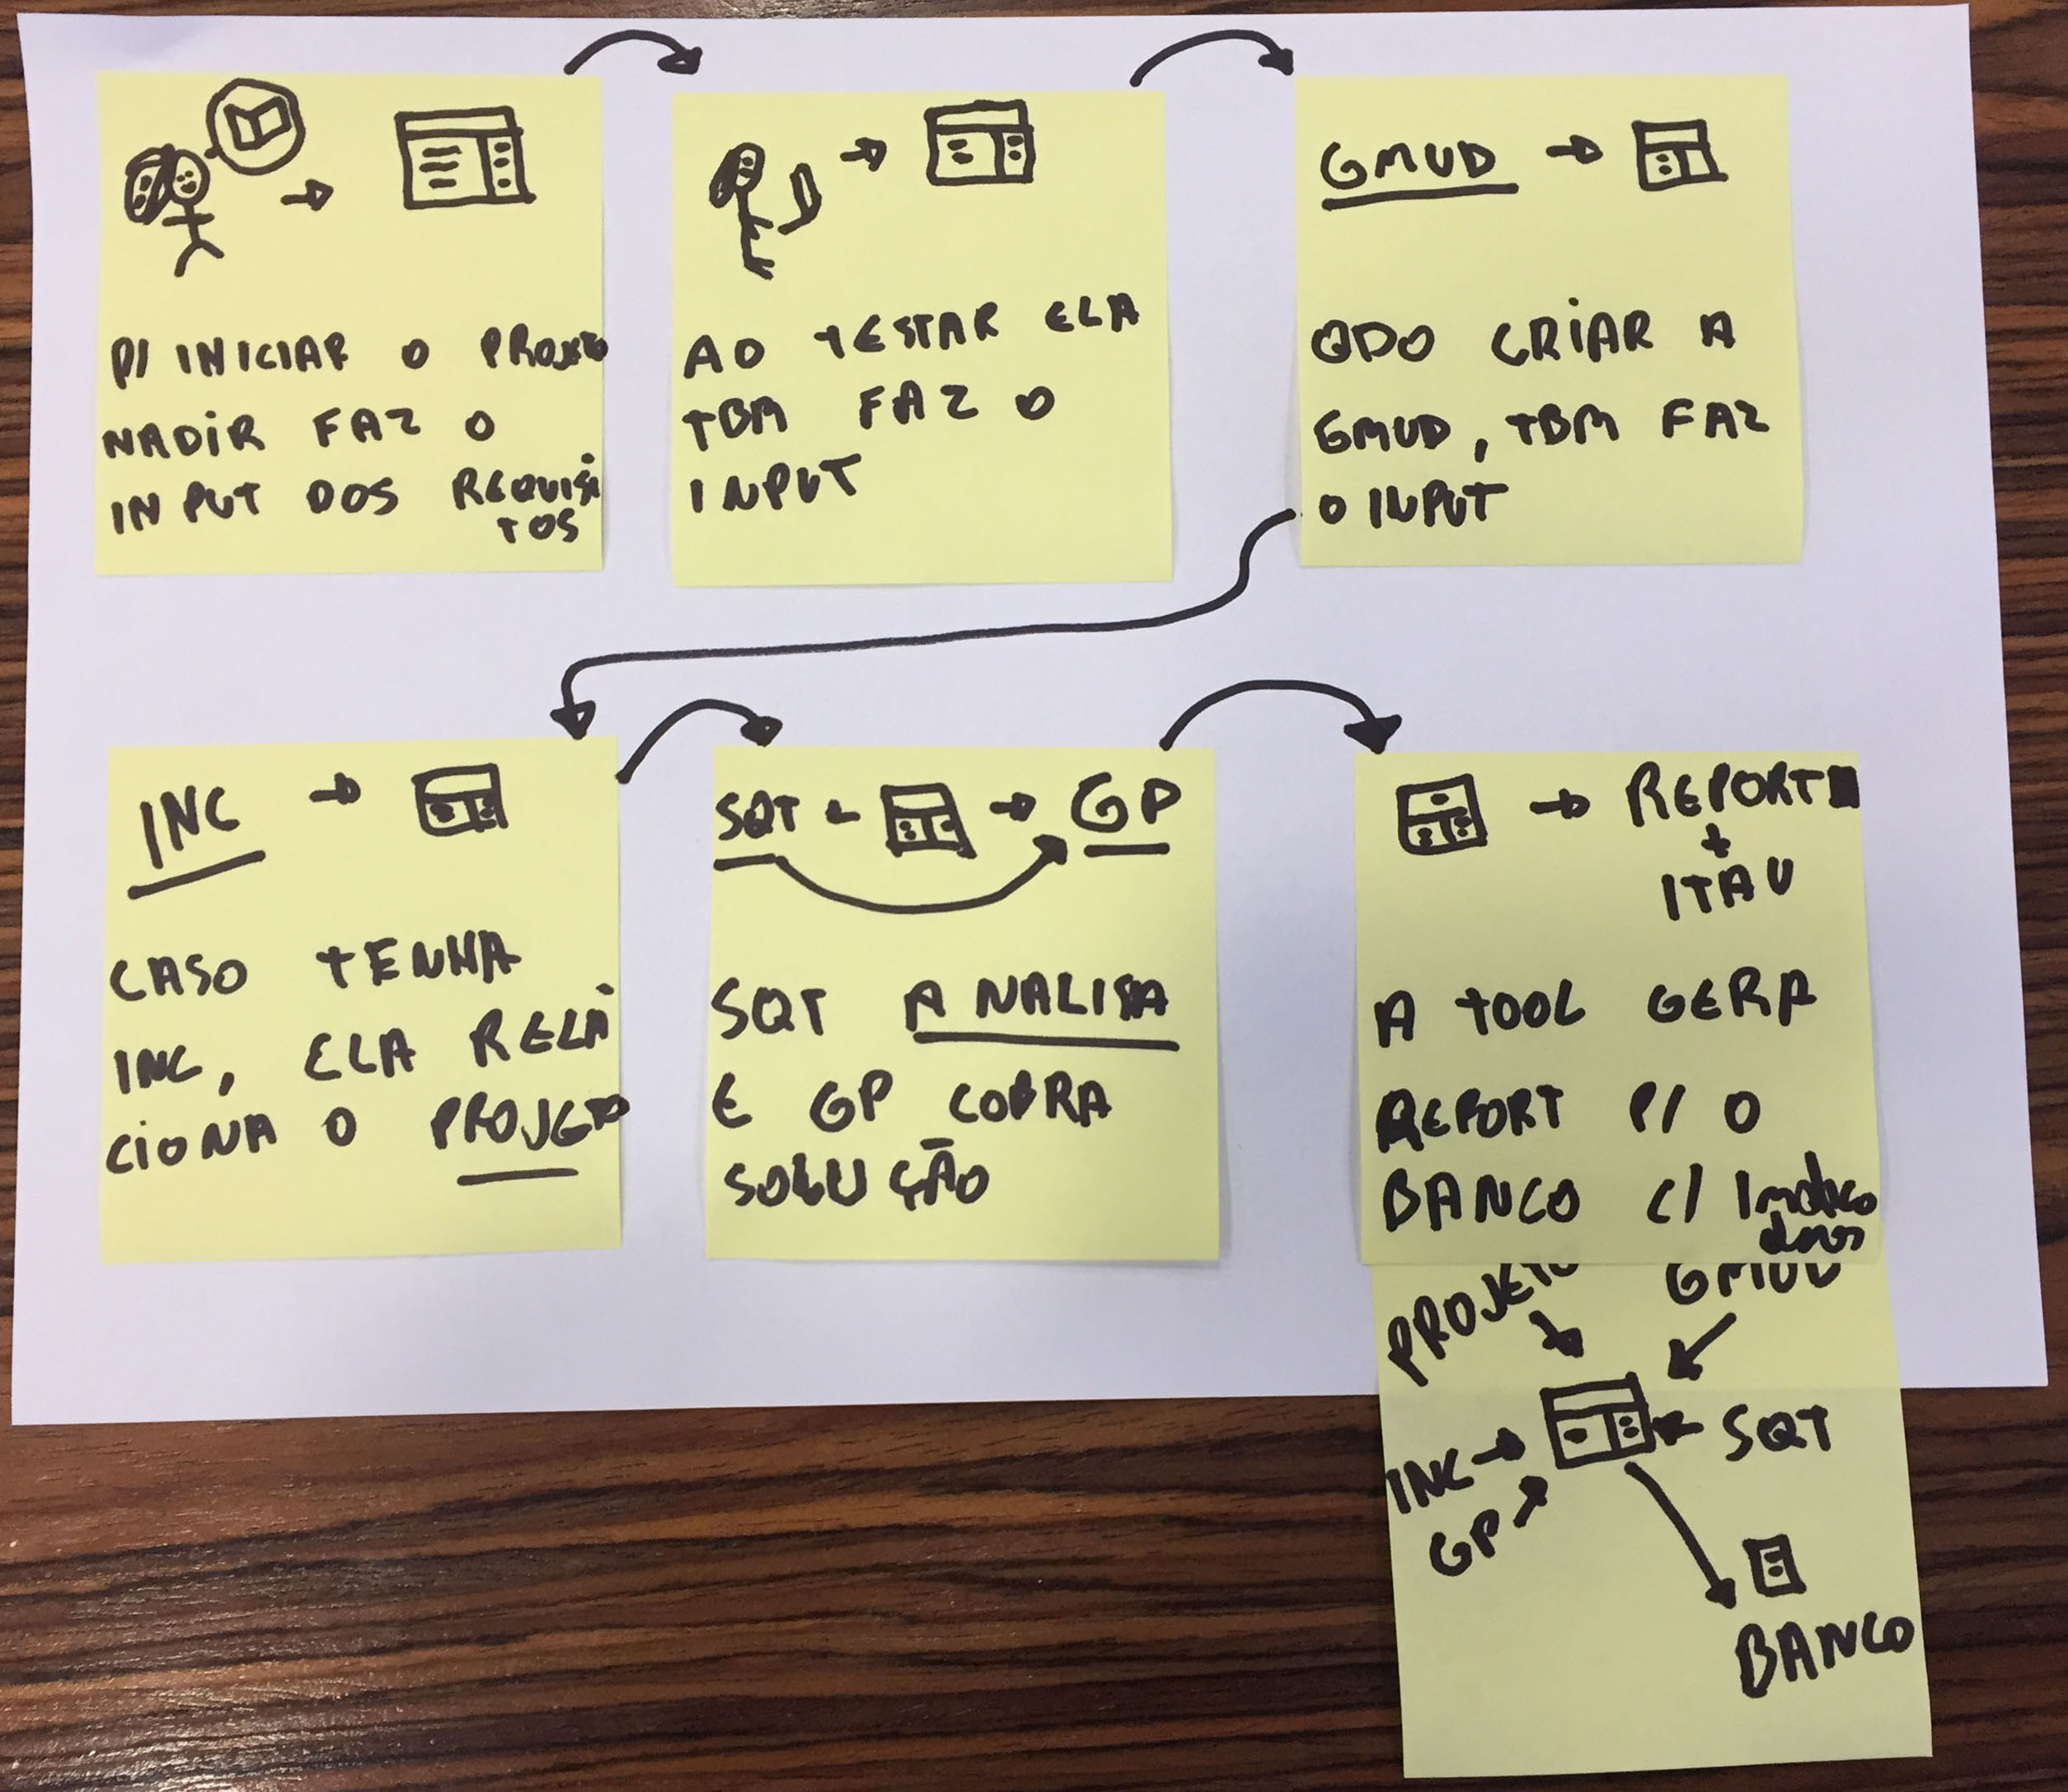 P/ INICIAR O PROJETO
NADIR FAZ O
INPUT DOS REQUISI
TOS
AO TESTAR ELA
TBM FAZ O
INPUT
GMUD
QDO CRIAR A
GMUD, TBM FAZ
O INPUT
INC
CASO TENHA
INC, ELA RELA
CIONA O PROJETO
SQT
GP
SQT ANALISA
E GP COBRA
SOLUÇÃO
REPORT
+
ITAU
A TOOL GERA
REPORT P/ O
BANCO C/ Indica
dores
PROJETO
GMUD
INC
SQT
GP
BANCO